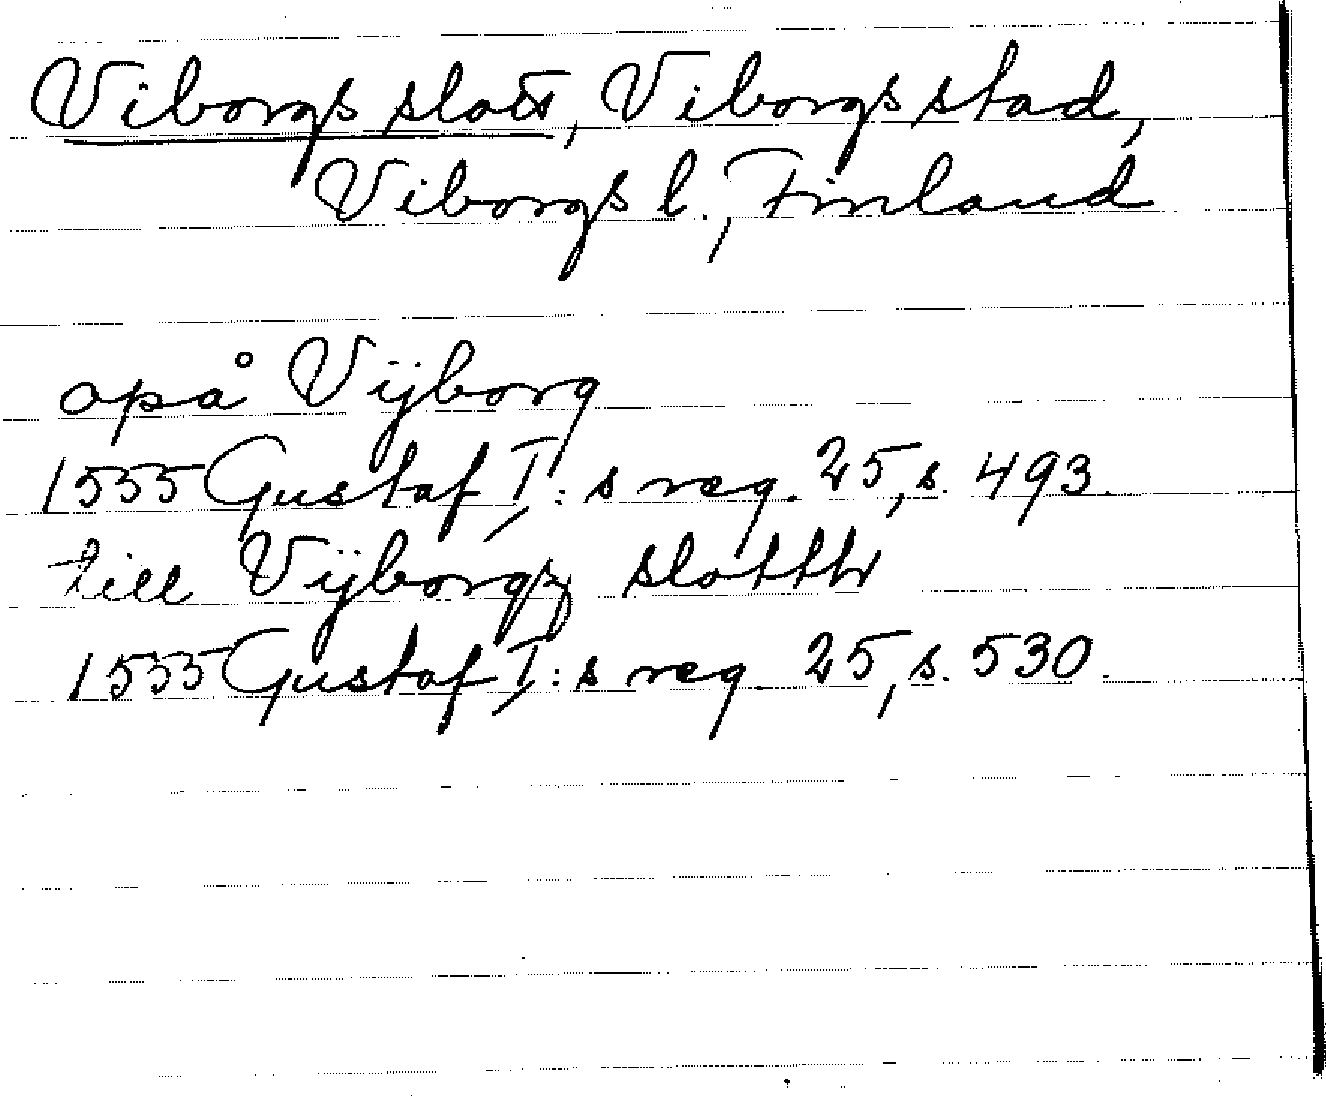 Viborgs slott, Viborgs stad,
Viborgs l., Finland
opå Vijborg
1555 Gustaf I:s reg. 25, s. 493.
till Vijborgz slotth
1555 Gustaf I:s reg. 25, s. 530.